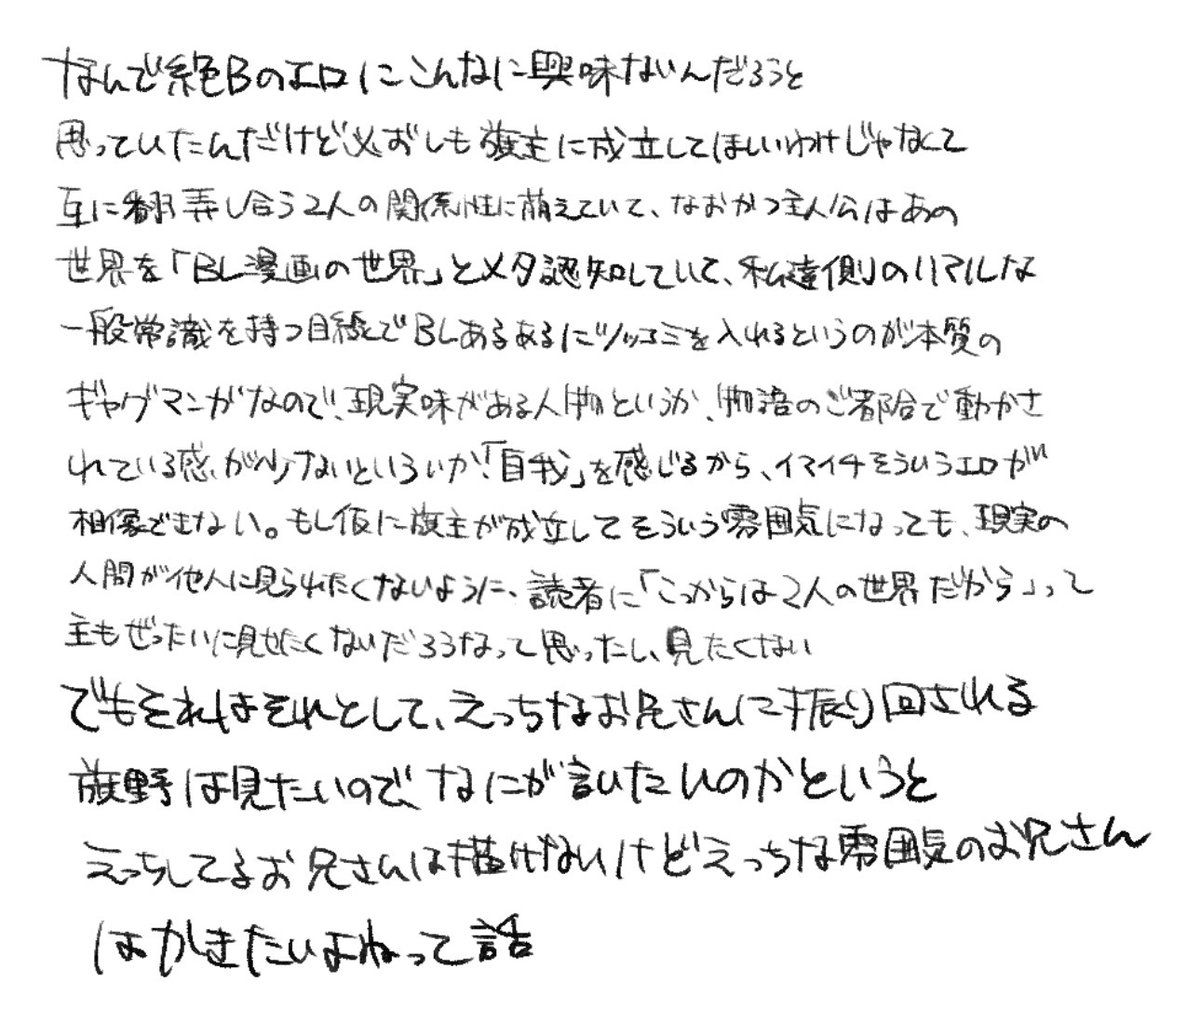 なんで絶Bのエロにこんなに興味ないんだろうと
思っていたんだけど必ずしも旗主に成立してほしいわけじゃなくて
互に翻弄し合う2人の関係性に萌えていて、なおかつ主人公はあの
世界を「BL漫画の世界」とメタ認知していて、私達側のリアルな
一般常識を持つ目線でBLあるあるにツッコミを入れるというのが本質の
ギャグマンガなので、現実味がある人物というか、物語のご都合で動かさ
れている感が少ないというか「自我」を感じるから、イマイチそういうエロが
想像できない。もし仮に旗主が成立してそういう雰囲気になっても、現実の
人間が他人に見られたくないように、読者に「こっからは2人の世界だから」って
主もぜったいに見せたくないだろうなって思ったし、見たくない
でもそれはそれとして、えっちなお兄さんに振り回される
旗野は見たいので、なにが言いたいのかというと
えっちしてるお兄さんは描けないけどえっちな雰囲気のお兄さん
はかきたいよねって話